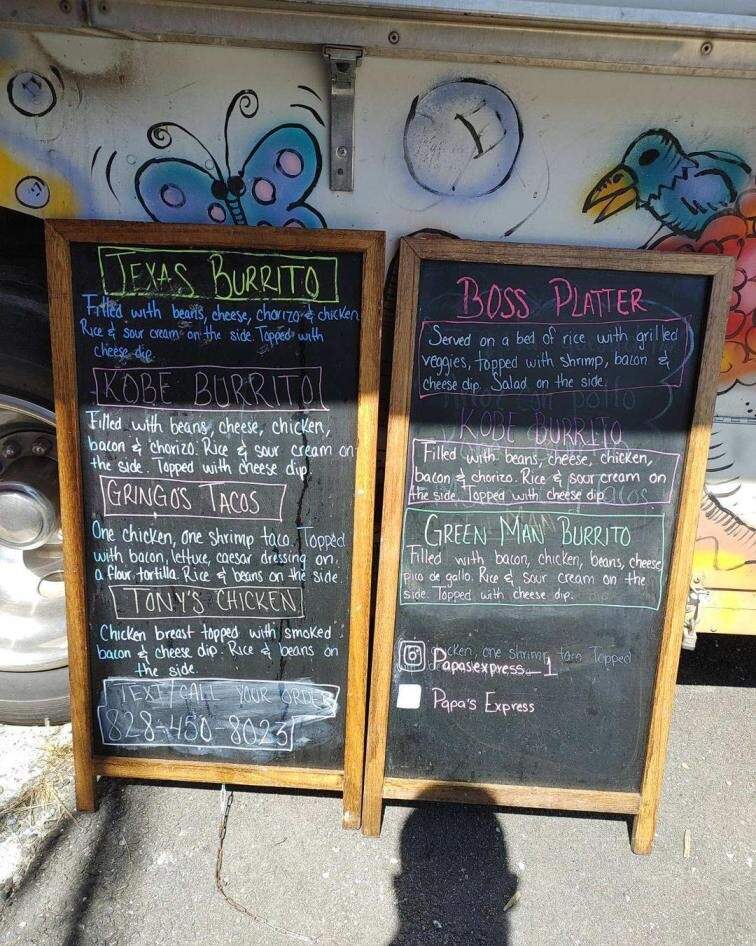 TEXAS BURRITO
Filled with beans, cheese, chorizo & chicken
Rice & sour cream on the side. Topped with
cheese dip
KOBE BURRITO
Filled with beans, cheese, chicken,
bacon & chorizo. Rice & sour cream on
the side. Topped with cheese dip
GRINGOS TACOS
One chicken, one shrimp taco. Topped
with bacon, lettuce, caesar dressing on
a flour tortilla. Rice & beans on the side.
TONY'S CHICKEN
Chicken breast topped with smoked
bacon & cheese dip. Rice & beans on
the side.
TEXT/CALL YOUR ORDER
828-450-8023
BOSS PLATTER
Served on a bed of rice with grilled
veggies, topped with shrimp, bacon &
cheese dip. Salad on the side.
KOBE BURRITO
Filled with beans, cheese, chicken,
bacon & chorizo. Rice & sour cream on
the side. Topped with cheese dip
GREEN MAN BURRITO
Filled with bacon, chicken, beans, cheese
pico de gallo. Rice & sour cream on the
side. Topped with cheese dip.
cken, one shrimp taco Topped
Papasexpress_1
Papa's Express